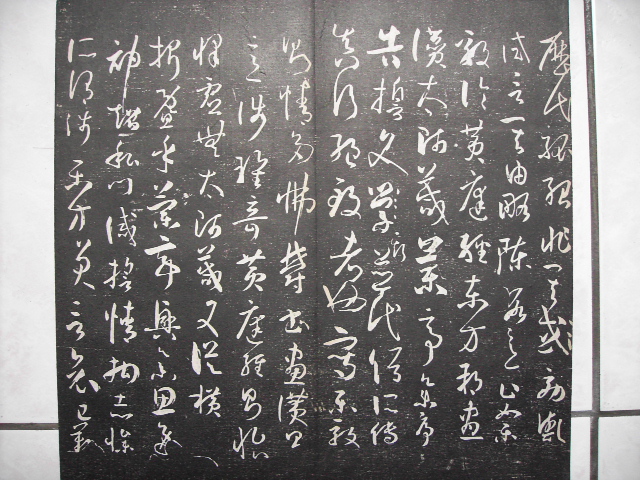 歷代孤紹非其效歟
試言其由略陳數意止如樂
毅論黃庭經東方朔畫
讚太師箴蘭亭集序
告誓文斯並代俗所傳
真行絕致者也寫樂毅
則情多怫鬱書畫讚則
意涉瑰奇黃庭經則怡
懌虛無太師箴又從橫
爭折暨乎蘭亭興集思逸
神超私門誡誓情拘志慘
所謂涉樂方笑言哀已歎